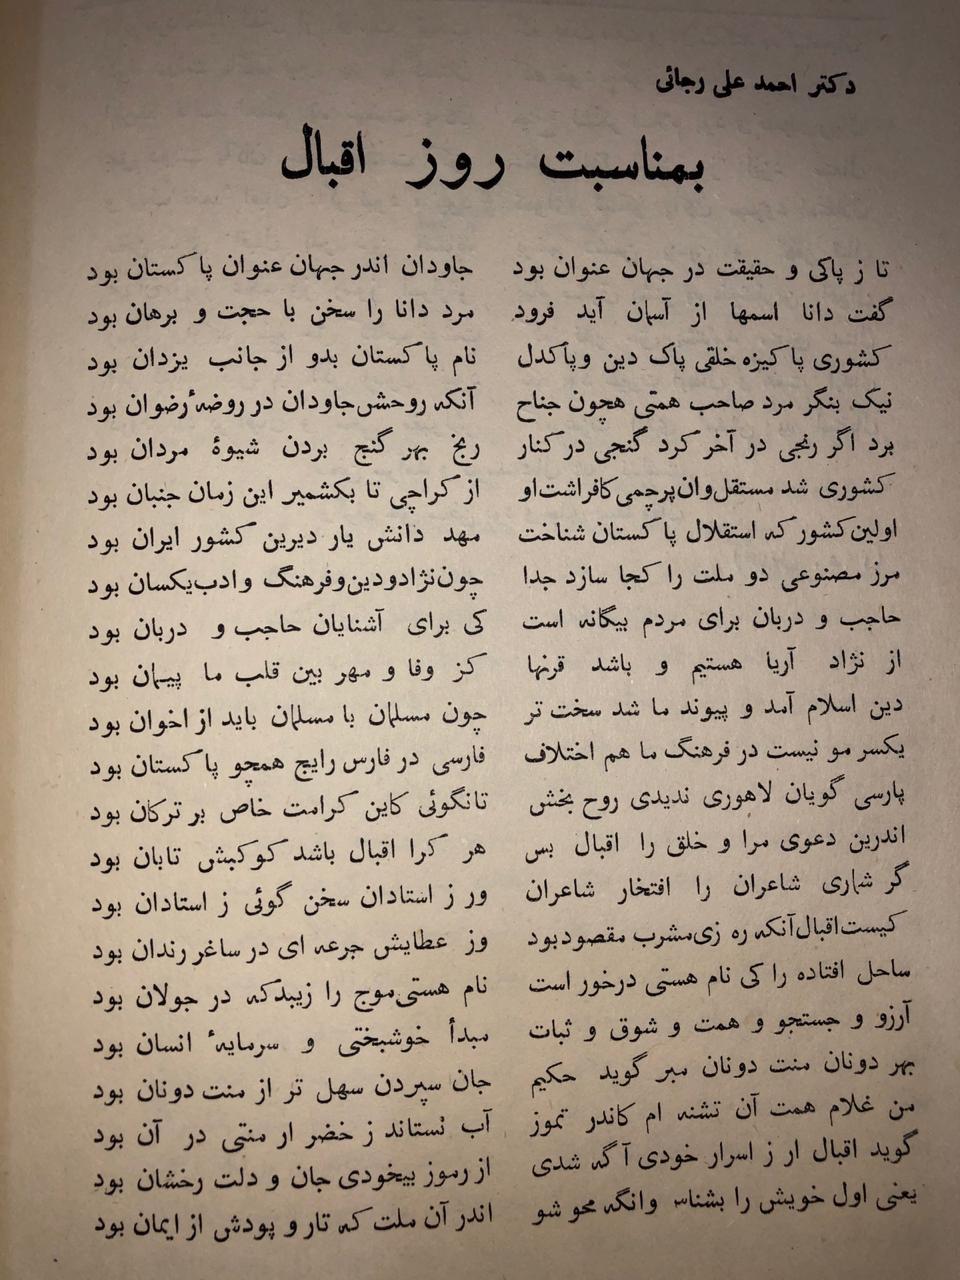 دکتر احمد علی رجائی
بمناسبت روز اقبال
تا ز پاکی و حقیقت در جهان عنوان بود جاودان اندر جهان عنوان پاکستان بود
گفت دانا اسمها از آسمان آید فرود مرد دانا را سخن با حجت و برهان بود
کشوری پاکیزه خلقی پاک دین و پاکدل نام پاکستان بدو از جانب یزدان بود
نیک بنگر مرد صاحب همتی همچون جناح آنکه روحش جاودان در روضهٔ رضوان بود
برد اگر رنجی در آخر کرد گنجی در کنار رنج بهر گنج بردن شیوۀ مردان بود
کشوری شد مستقل وان پرچمی کافراشت او از کراچی تا بکشمیر این زمان جنبان بود
اولین کشور که استقلال پاکستان شناخت مهد دانش یار دیرین کشور ایران بود
مرز مصنوعی دو ملت را کجا سازد جدا چون نژاد و دین و فرهنگ و ادب یکسان بود
حاجب و دربان برای مردم بیگانه است کی برای آشنایان حاجب و دربان بود
از نژاد آریا هستیم و باشد قرنها کز وفا و مهر بین قلب ما پیمان بود
دین اسلام آمد و پیوند ما شد سخت تر چون مسلمان با مسلمان باید از اخوان بود
یکسر مو نیست در فرهنگ ما هم اختلاف فارسی در فارس رایج همچو پاکستان بود
پارسی گویان لاهوری ندیدی روح بخش تا نگوئی کاین کرامت خاص بر ترکان بود
اندرین دعوی مرا و خلق را اقبال بس هر کرا اقبال باشد کوکبش تابان بود
گر شماری شاعران را افتخار شاعران ور ز استادان سخن گوئی ز استادان بود
کیست اقبال آنکه ره زی مشرب مقصود بود وز عطایش جرعه ای در ساغر رندان بود
ساحل افتاده را کی نام هستی درخور است نام هستی موج را زیبد که در جولان بود
آرزو و جستجو و همت و شوق و ثبات مبدأ خوشبختی و سرمایهٔ انسان بود
بهر دونان منت دونان مبر گوید حکیم جان سپردن سهل تر از منت دونان بود
من غلام همت آن تشنه ام کاندر تموز آب نستاند ز خضر ار منتی در آن بود
گوید اقبال ار ز اسرار خودی آگه شدی از رموز بیخودی جان و دلت رخشان بود
یعنی اول خویش را بشناس وانگه محو شو اندر آن ملت که تار و پودش از ایمان بود